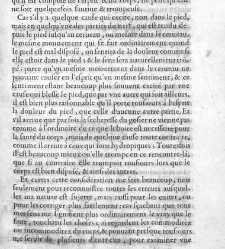 ne soit quelquefois fautiue & trompeuse.
Car s'il y a quelque cause qui excite, non dans le pied,
mais en quelqu'vne des parties du nerf, qui est tendu de-
puis le pied jusqu'au cerueau, ou mesme dans le cerueau,
le mesme mouuement qui se fait ordinairement quand
le pied est mal disposé, on sentira de la douleur comme si
elle estoit dans le pied & le sens sera naturellement trom-
pé; parce qu'vn mesme mouuement dans le cerueau ne
pouuant causer en l'esprit qu'vn mesme sentiment, & ce
sentiment estant beaucoup plus souuent excité par vne
cause qui blesse le pied, que par vne autre qui soit ailleurs,
il est bien plus raisonnable qu'il porte tousiours à l'esprit
la douleur du pied, que celle d'aucune autre partie. Et
s'il arriue que parfois la secheresse du gosier ne vienne pas
comme à l'ordinaire de ce que le boire est necessaire pour
la santé du corps, mais de quelque cause toute contraire,
comme il arriue à ceux qui sont hydropiques: Toutesfois
il est beaucoup mieux qu'elle trompe en ce rencontre-là,
que si au contraire elle trompoit tousiours lors que le
corps est bien disposé, & ainsi des autres.
Et certes cette consideration me sert beaucoup, non
seulement pour reconnoistre toutes les erreurs ausquel-
les ma nature est sujette, mais aussi pour les euiter, ou
pour les corriger plus facilement: car sçachant que tous
mes sens me signifient plus ordinairement le vray que le
faux, touchant les choses qui regardent les commoditez
ou incommoditez du corps, & pouuant presque tousiours
me seruir de plusieurs d'entre eux, pour examiner vne